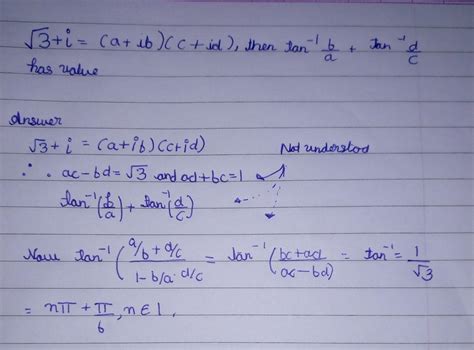 √3+i = (a+ib)(c+id), then tan⁻¹ b/a + tan⁻¹ d/c
has value
Answer
√3+i = (a+ib)(c+id)
Not understood
∴ ac-bd=√3 and ad+bc=1
tan⁻¹(b/a) + tan⁻¹(d/c)
Now tan⁻¹(a/b + d/c / 1-b/a·d/c = tan⁻¹(bc+ad / ac-bd) = tan⁻¹= 1/√3
= nπ + π/6, n∈I,